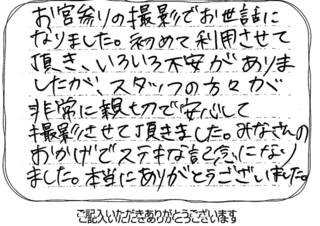 お宮参りの撮影でお世話に
なりました。初めて利用させて
頂き、いろいろ不安がありま
したが、スタッフの方々が
非常に親切で安心して
撮影させて頂きました。みなさんの
おかげでステキな記念になり
ました。本当にありがとうございました。
ご記入いただきありがとうございます